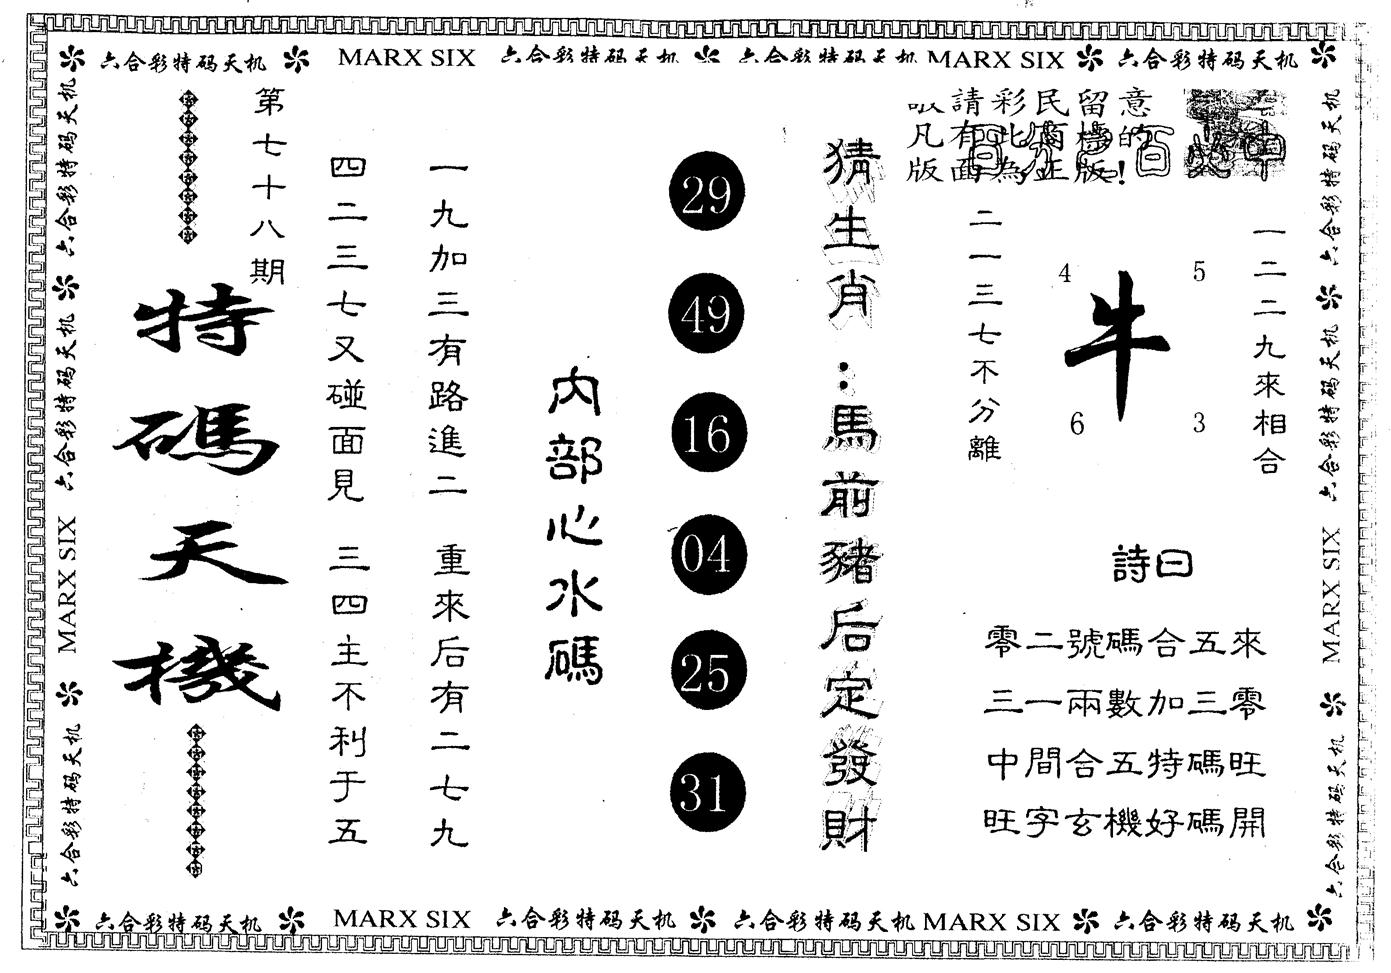 六合彩特码天机 MARX SIX 六合彩特码天机 六合彩特码天机 MARX SIX 六合彩特码天机
六合彩特码天机
六合彩特码天机
MARX SIX
六合彩特码天机
第七十八期
特碼天機
四二三七又碰面見 三四主不利于五
一九加三有路進二 重來后有二七九
內部心水碼
29
49
16
04
25
31
猜生肖：馬前豬后定發財
請彩民留意
凡有此商標的
版面為正版!
二一三七不分離
4
5
牛
6
3
一二二九來相合
詩曰
零二號碼合五來
三一兩數加三零
中間合五特碼旺
旺字玄機好碼開
六合彩特码天机
六合彩特码天机
MARX SIX
六合彩特码天机
六合彩特码天机 MARX SIX 六合彩特码天机 六合彩特码天机 MARX SIX 六合彩特码天机